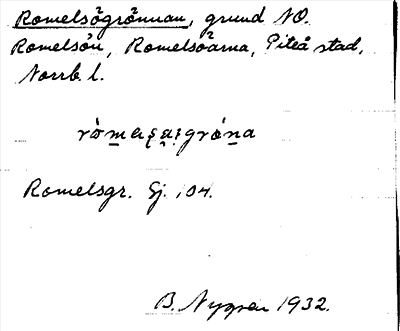 Romelsögrönnan, grund NO.
Romelsön, Romelsöarna, Piteå stad,
Norrb. l.
Romelsgr. Sj. 104.
B. Nygren 1932.